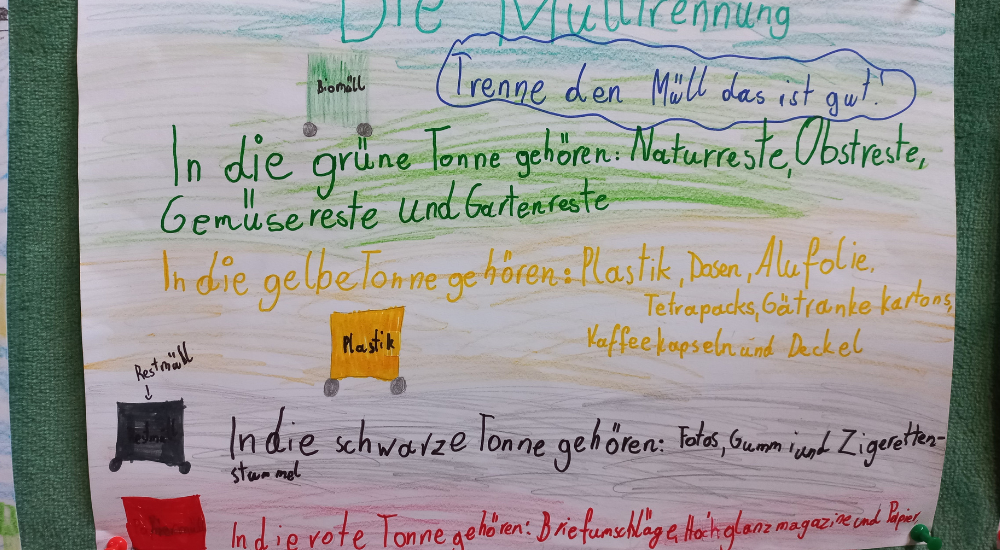 Die Mülltrennung
Biomüll
Trenne den Müll das ist gut!
In die grüne Tonne gehören: Naturreste, Obstreste,
Gemüsereste und Gartenreste
In die gelbe Tonne gehören: Plastik, Dosen, Alufolie,
Tetrapacks, Gätränke kartons,
Kaffeekapseln und Deckel
Plastik
Restmüll
Restmüll
In die schwarze Tonne gehören: Fotos, Gummi und Zigeretten-
stummel
In die rote Tonne gehören: Briefumschläge, Hochglanzmagazine und Papier